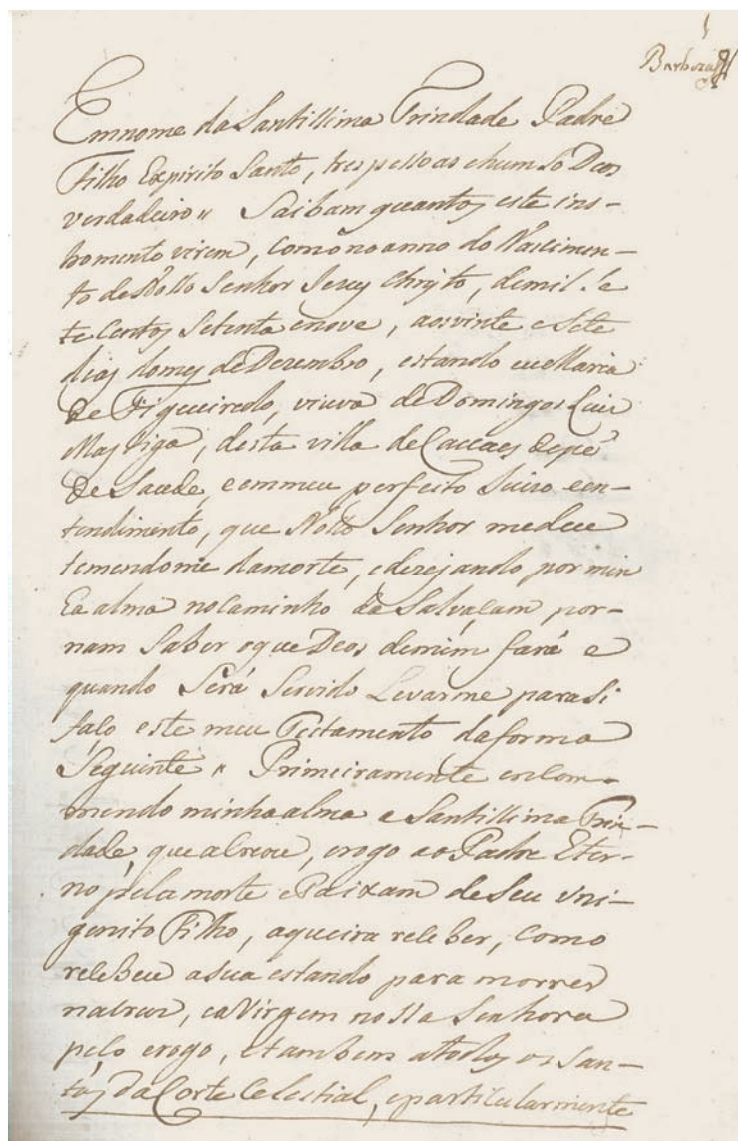 Barboza
Emnome da Santissima Trindade Padre
Filho Expirito Santo, tres pessoas ehum So Deos
verdadeiro" Saibam quantos este ins-
tromento virem, como no anno do Nascimen-
to deNosso Senhor Jesus Christo, demil Se
te Centos Setenta enove, aosvinte eSete
dias domes deDezembro, estando eu Maria
de Figueiredo, viuva deDomingos Luis
desta villa de Cascaes depe
de Saude, eommeu perfeito Juizo een-
tendimento, que Nosso Senhor medeu
temendome damorte, edezejando por min
ha alma nocaminho da Salvaçam, por-
nam Saber oque Deos demim fará e
quando Será Servido Levarme paraSi
faço este meu Testamento daforma
Seguinte" Primeiramente encom-
mendo minha alma a Santissima Trin-
dade, que aCreou, erogo ao Padre Eter-
no pela morte ePaixam deSeu Vni-
genito Filho, aqueira receber, Como
recebeu aSua estando para morrer
naCruz, eaVirgem nossa Senhora
peço erogo, etambem aTodos os San-
tos da Corte Celestial, eparticularmente